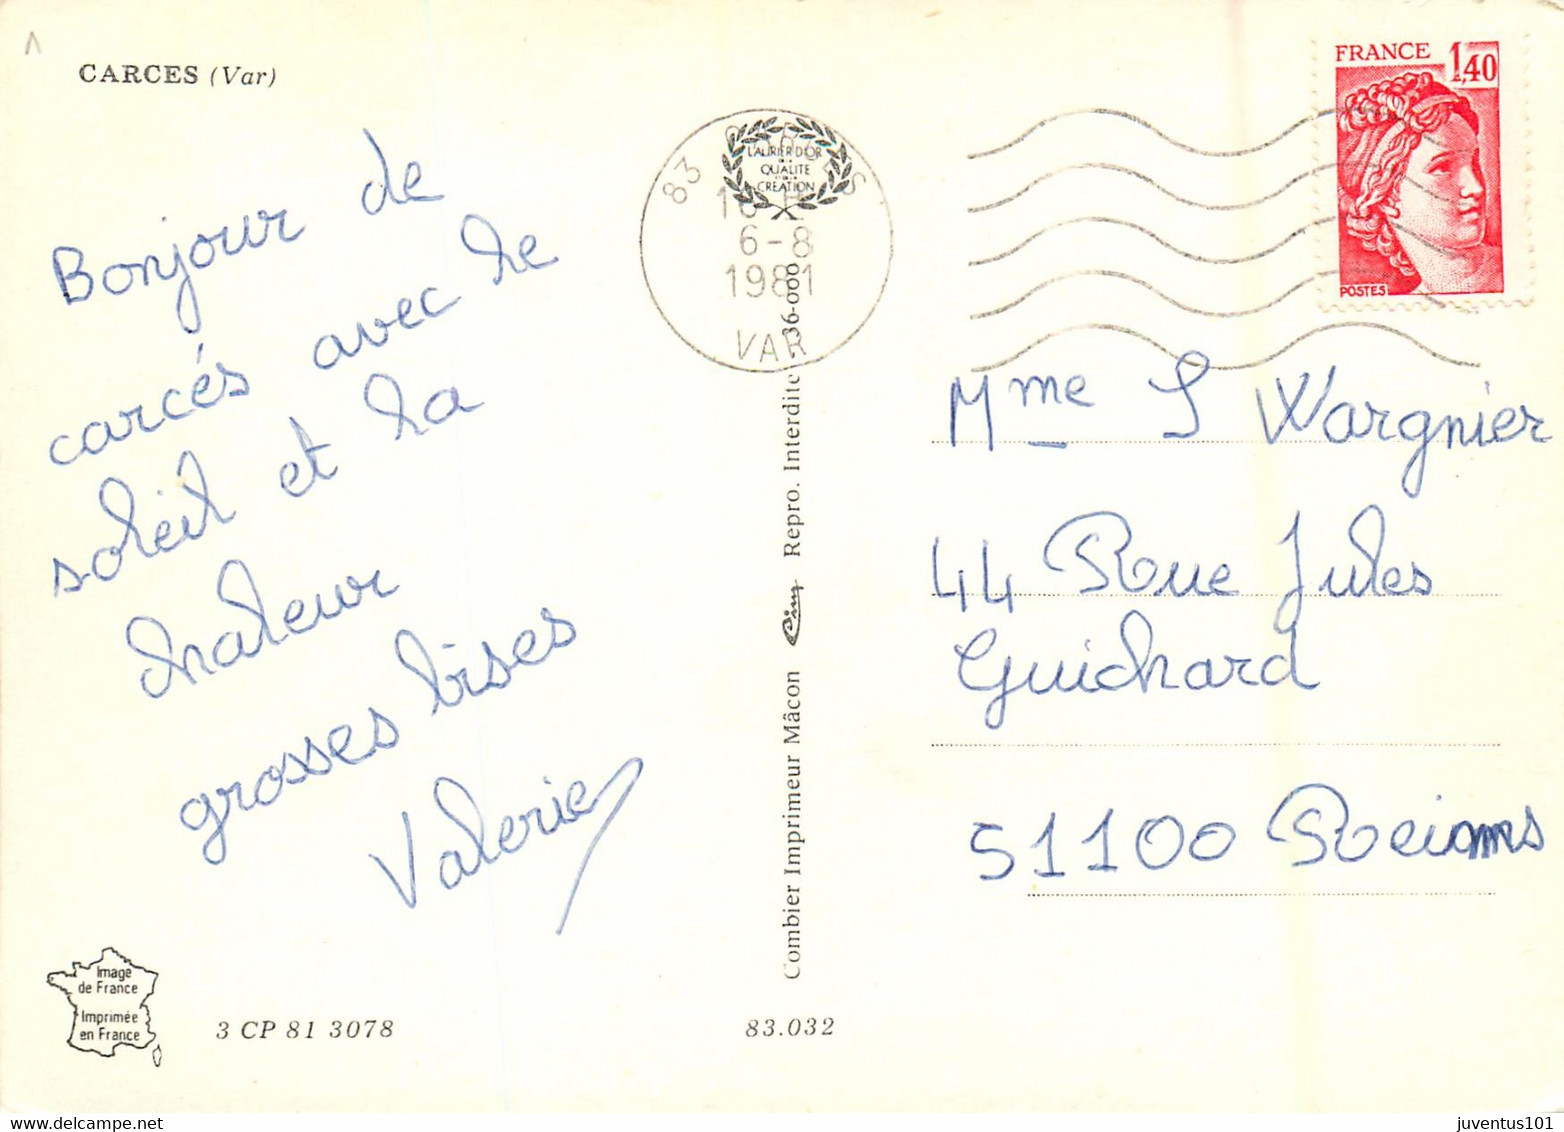 CARCES (Var)
Bonjour de
carcés avec le
soleil et la
chaleur
grosses bises
Valerie
Image
de France
Imprimée
en France
3 CP 81 3078
83.032
Combier Imprimeur Mâcon Cim Repro. Interdite 36-000
L'AURIER D'OR
DE LA
QUALITÉ
CRÉATION
83
6-8
1981
VAR
FRANCE 1,40
POSTES
Mme S Wargnier
44 Rue Jules
Guichard
51100 Reims
juventus101